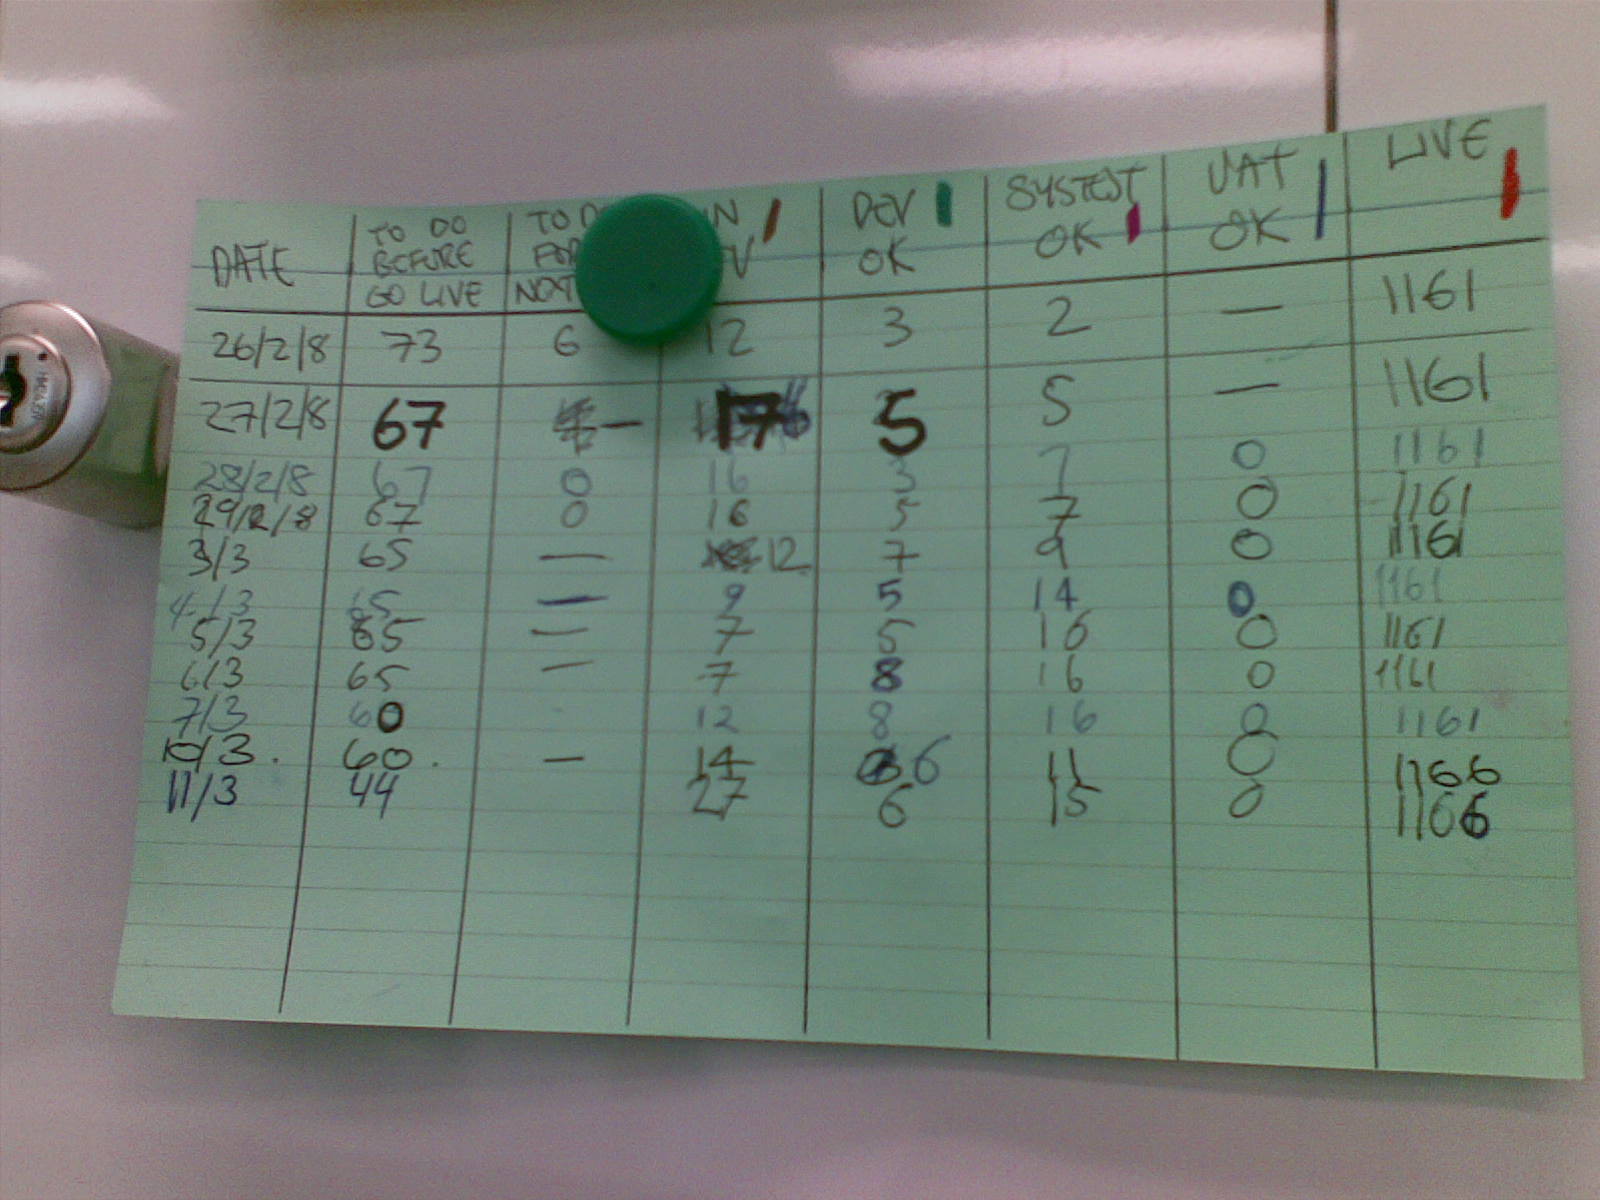 DATE TO DO BEFORE GO LIVE TO FOR IN DEV OK SYSTEST OK UAT OK LIVE
26/2/8 73 6 12 3 2 — 1161
27/2/8 67 — 17 5 5 — 1161
28/2/8 67 0 16 3 7 0 1161
29/2/8 67 0 16 5 7 0 1161
3/3 65 — 12 7 9 0 1161
4/3 65 — 9 5 14 0 1161
5/3 65 — 7 5 16 0 1161
6/3 65 — 7 8 16 0 1161
7/3 60 12 8 16 0 1161
10/3. 60. — 14 6 11 0 1166
11/3 44 27 6 15 0 1166